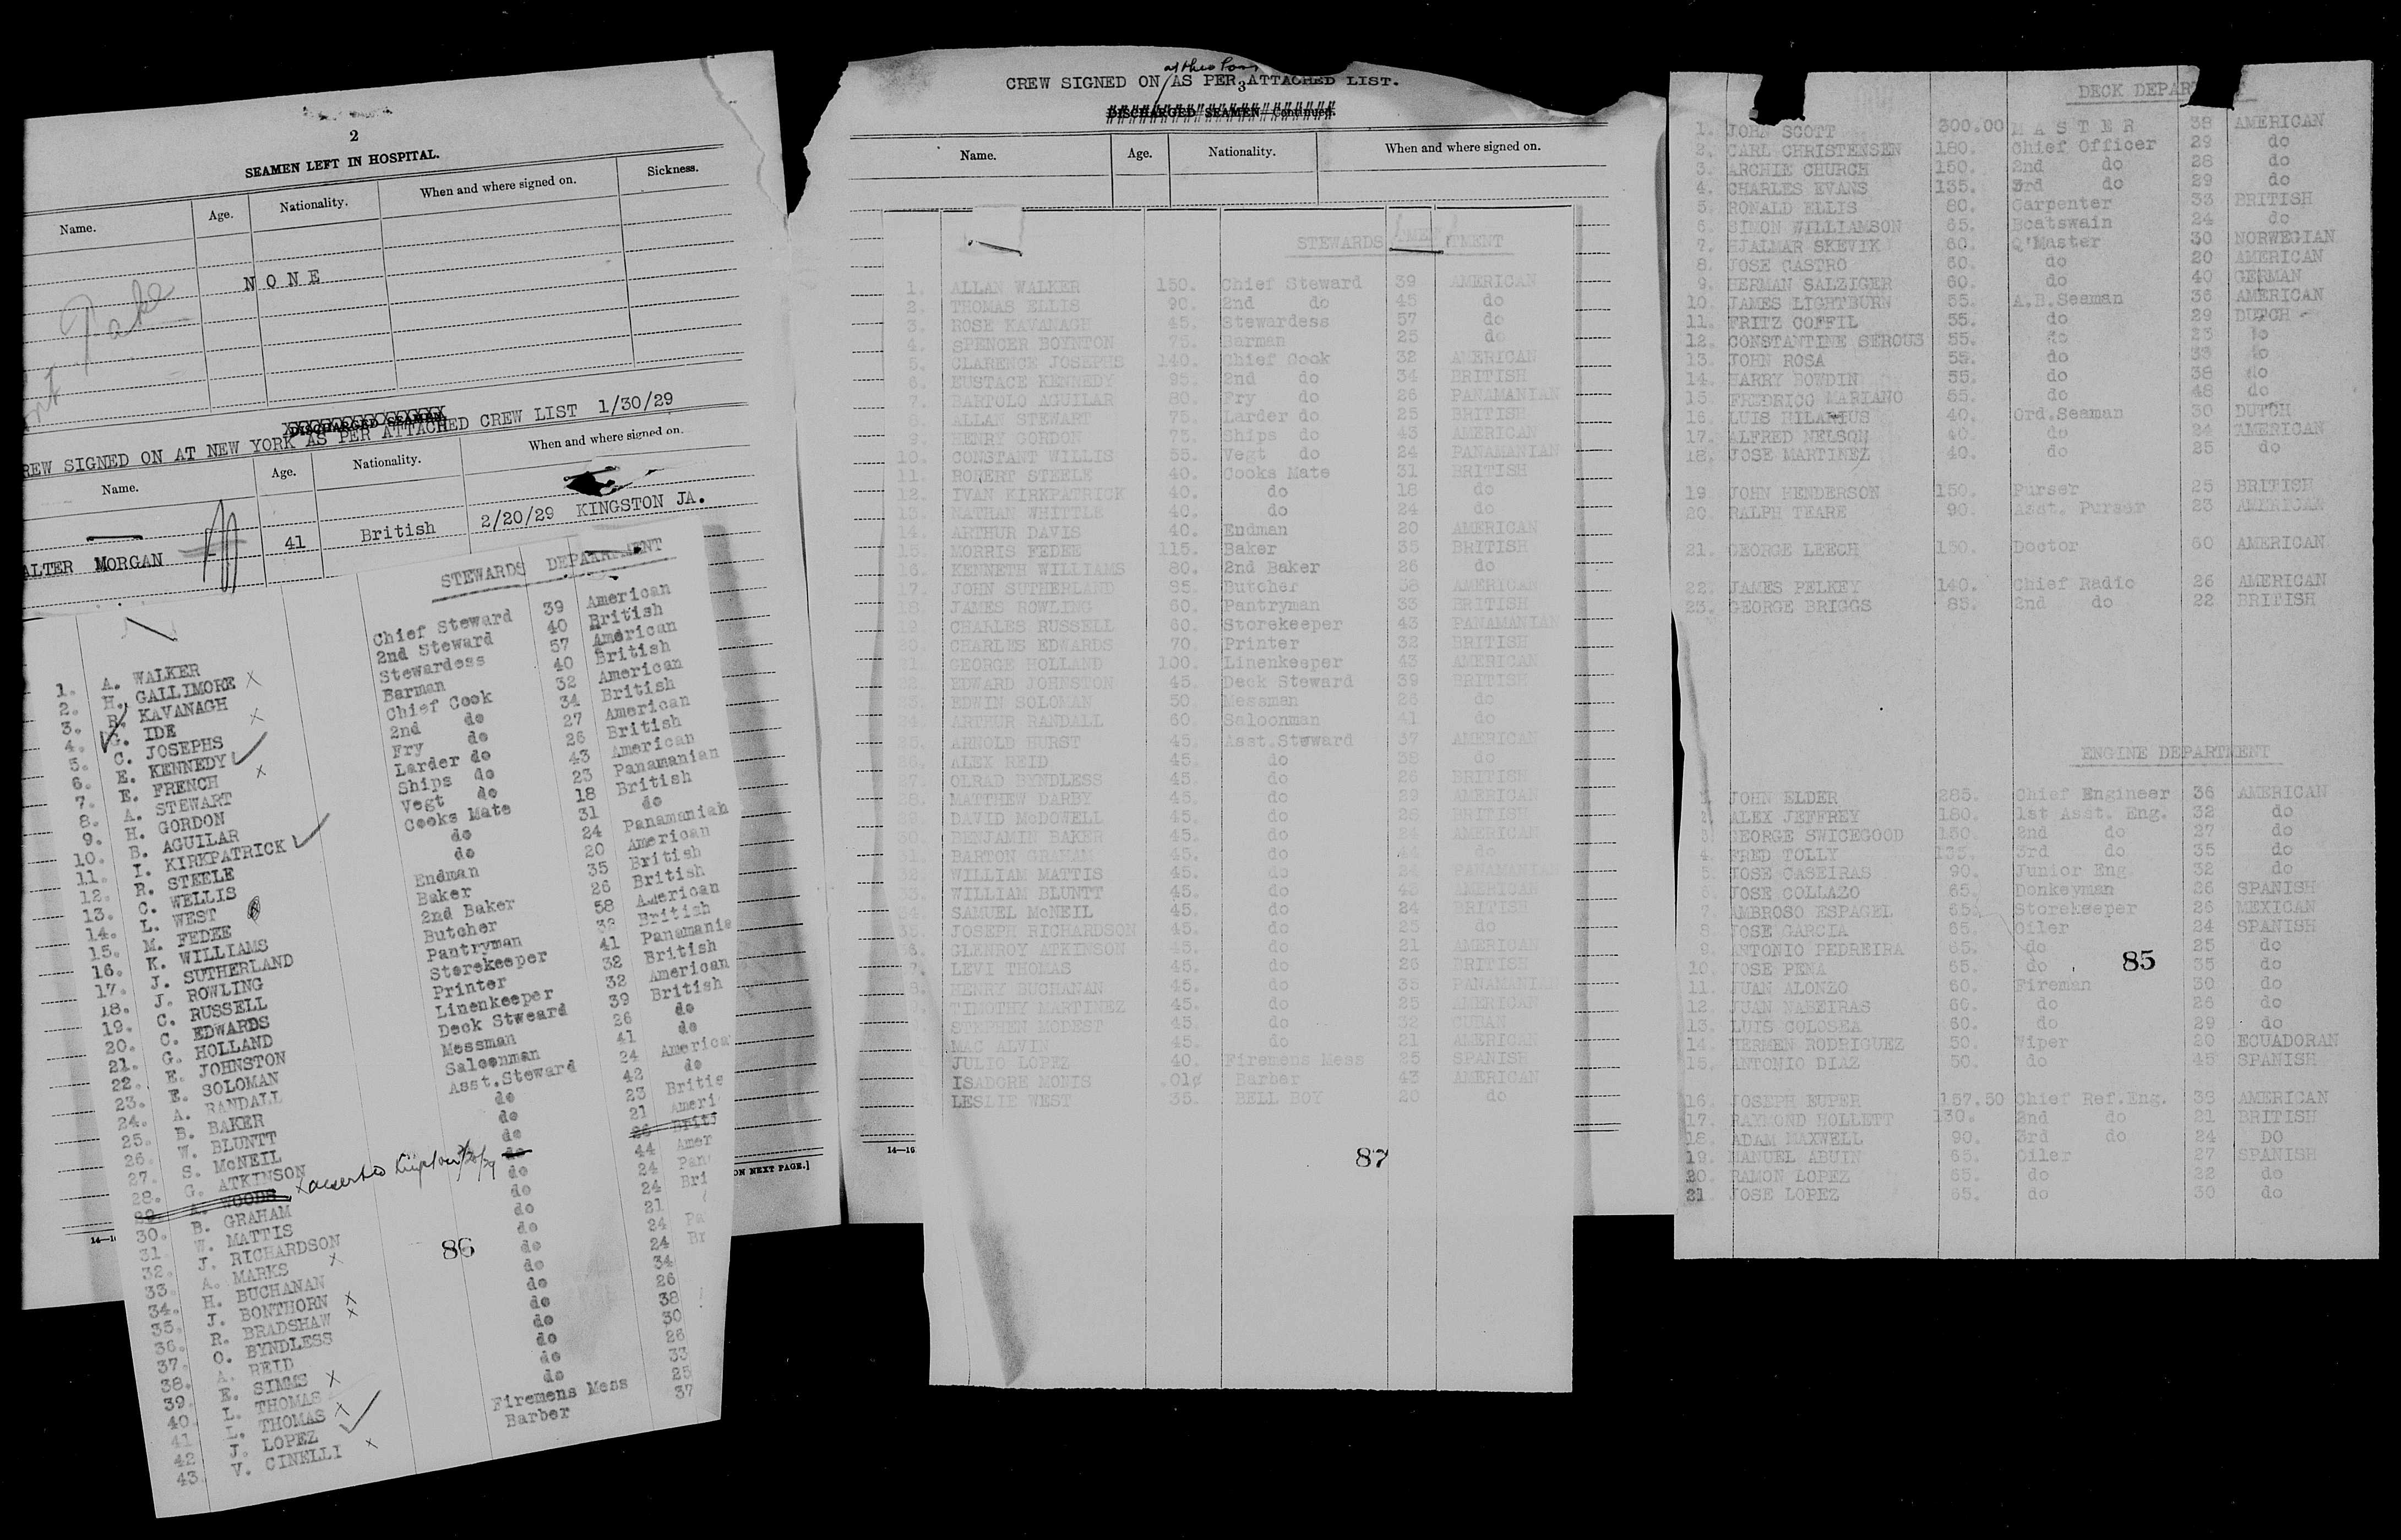 2
SEAMEN LEFT IN HOSPITAL.
Name. Age. Nationality. When and where signed on. Sickness.
NONE
DISCHARGED SEAMEN
REW SIGNED ON AT NEW YORK AS PER ATTACHED CREW LIST 1/30/29
Name. Age. Nationality. When and where signed on.
ALTER MORGAN 41 British 2/20/29 KINGSTON JA.
STEWARDS DEPARTMENT
1. A. WALKER Chief Steward 39 American
2. H. GALLIMORE X 2nd Steward 40 British
3. R. KAVANAGH Stewardess 57 American
4. G. IDE X Barman 40 British
5. C. JOSEPHS Chief Cook 32 American
6. E. KENNEDY 2nd do 34 British
7. E. FRENCH X Fry do 27 American
8. A. STEWART Larder do 26 British
9. H. GORDON Ships do 43 American
10. B. AGUILAR Vegt do 23 Panamanian
11. I. KIRKPATRICK Cooks Mate 18 British
12. R. STEELE do 31 do
13. C. WELLIS do 24 Panamaniah
14. L. WEST Endman 20 American
15. M. FEDEE Baker 35 British
16. K. WILLIAMS 2nd Baker 26 British
17. J. SUTHERLAND Butcher 58 American
18. J. ROWLING Pantryman 32 British
19. C. RUSSELL Storekeeper 41 Panamania
20. C. EDWARDS Printer 32 British
21. G. HOLLAND Linenkeeper 32 American
22. E. JOHNSTON Deck Stweard 39 British
23. E. SOLOMAN Messman 26 do
24. A. RANDALL Saloonman 41 do
25. B. BAKER Asst.Steward 24 America
26. W. BLUNTT do 42 do
27. S. McNEIL do 23 Britis
28. G. ATKINSON do 21 Ameri
29. A. WOODS X deserted Kingston do 26 Briti
30. B. GRAHAM do 44 Amer
31. W. MATTIS do 24 Pan
32. J. RICHARDSON do 24 Bri
33. A. MARKS X do 21
34. H. BUCHANAN do 24 Pa
35. J. BONTHORN X do 24 Br
36. R. BRADSHAW X do 34
37. O. BYNDLESS do 26
38. A. REID do 38
39. E. SIMMS X do 30
40. L. THOMAS do 26
41 L. THOMAS X do 33
42 J. LOPEZ Firemens Mess 25
43 V. CINELLI X Barber 37
86
ON NEXT PAGE.]
CREW SIGNED ON AS PER ATTACHED LIST.
3
DISCHARGED SEAMEN—Continued.
Name. Age. Nationality. When and where signed on.
STEWARDS TMENT
1. ALLAN WALKER 150. Chief Steward 39 AMERICAN
2. THOMAS ELLIS 90. 2nd do 45 do
3. ROSE KAVANAGH 45. Stewardess 57 do
4. SPENCER BOYNTON 75. Barman 25 do
5. CLARENCE JOSEPHS 140. Chief Cook 32 AMERICAN
6. EUSTACE KENNEDY 95. 2nd do 34 BRITISH
7. BARTOLO AGUILAR 80. Fry do 26 PANAMANIAN
8. ALLAN STEWART 75. Larder do 25 BRITISH
9. HENRY GORDON 75. Ships do 43 AMERICAN
10. CONSTANT WILLIS 55. Vegt do 24 PANAMANIAN
11. ROBERT STEELE 40. Cooks Mate 31 BRITISH
12. IVAN KIRKPATRICK 40. do 18 do
13. NATHAN WHITTLE 40. do 24 do
14. ARTHUR DAVIS 40. Endman 20 AMERICAN
MORRIS FEDEE 115. Baker 35 BRITISH
16. KENNETH WILLIAMS 80. 2nd Baker 26 do
17. JOHN SUTHERLAND 85. Butcher 58 AMERICAN
18. JAMES ROWLING 60. Pantryman 33 BRITISH
CHARLES RUSSELL 60. Storekeeper 43 PANAMANIAN
20. CHARLES EDWARDS 70. Printer 32 BRITISH
GEORGE HOLLAND 100. Linenkeeper 43 AMERICAN
EDWARD JOHNSTON 45. Deck Steward 39 BRITISH
EDWIN SOLOMAN 50 Messman 26 do
ARTHUR RANDALL 60. Saloonman 41 do
ARNOLD HURST 45. Asst.Steward 37 AMERICAN
ALEX REID 45. do 38 do
OLRAD BYNDLESS 45. do 26 BRITISH
MATTHEW DARBY 45. do 29 AMERICAN
DAVID McDOWELL 45. do 26 BRITISH
BENJAMIN BAKER 45. do 24 AMERICAN
BARTON GRAHAM 45. do 44 do
WILLIAM MATTIS 45. do 24 PANAMANIAN
WILLIAM BLUNTT 45. do 43 AMERICAN
SAMUEL McNEIL 45. do 24 BRITISH
JOSEPH RICHARDSON 45. do 25 do
GLENROY ATKINSON 45. do 21 AMERICAN
LEVI THOMAS 45. do 26 BRITISH
HENRY BUCHANAN 45. do 35 PANAMANIAN
TIMOTHY MARTINEZ 45. do 25 AMERICAN
STEPHEN MODEST 45. do 32 CUBAN
MAC ALVIN 45. do 21 AMERICAN
JULIO LOPEZ 40. Firemens Mess 25 SPANISH
ISADORE MONIS .01¢ Barber 43 AMERICAN
LESLIE WEST 35. BELL BOY 20 do
87
DECK DEPAR T
1. JOHN SCOTT 300.00 MASTER 38 AMERICAN
2. CARL CHRISTENSEN 180. Chief Officer 29 do
3. ARCHIE CHURCH 150. 2nd do 28 do
4. CHARLES EVANS 135. 3rd do 29 do
5. RONALD ELLIS 80. Carpenter 33 BRITISH
6. SIMON WILLIAMSON 65. Boatswain 24 do
7. HJALMAR SKEVIK 60. Q'Master 30 NORWEGIAN
8. JOSE CASTRO 60. do 20 AMERICAN
9. HERMAN SALZIGER 60. do 40 GERMAN
10. JAMES LIGHTBURN 55. A.B.Seaman 36 AMERICAN
11. FRITZ COFFIL 55. do 29 DUTCH
12. CONSTANTINE SEROUS 55. do 23 do
13. JOHN ROSA 55. do 33 do
14. HARRY BOWDIN 55. do 38 do
15. FREDRICO MARIANO 55. do 48 do
16. LUIS HILARIUS 40. Ord.Seaman 30 DUTCH
17. ALFRED NELSON 40. do 24 AMERICAN
18. JOSE MARTINEZ 40. do 25 do
19. JOHN HENDERSON 150. Purser 25 BRITISH
20. RALPH TEARE 90. Asst. Purser 23 AMERICAN
21. GEORGE LEECH 150. Doctor 60 AMERICAN
22. JAMES PELKEY 140. Chief Radio 26 AMERICAN
23. GEORGE BRIGGS 85. 2nd do 22 BRITISH
ENGINE DEPARTMENT
1. JOHN ELDER 285. Chief Engineer 36 AMERICAN
2. ALEX JEFFREY 180. 1st Asst. Eng. 32 do
3. GEORGE SWICEGOOD 150. 2nd do 27 do
4. FRED TOLLY 135. 3rd do 35 do
5. JOSE CASEIRAS 90. Junior Eng 32 do
6. JOSE COLLAZO 65. Donkeyman 26 SPANISH
7. AMBROSO ESPAGEL 65. Storekeeper 26 MEXICAN
8. JOSE GARCIA 65. Oiler 24 SPANISH
9. ANTONIO PEDREIRA 65. do 25 do
10 JOSE PENA 65. do 35 do
85
11. JUAN ALONZO 60. Fireman 30 do
12. JUAN NABEIRAS 60. do 26 do
13. LUIS COLOSEA 60. do 29 do
14. HERMEN RODRIGUEZ 50. Wiper 20 ECUADORAN
15. ANTONIO DIAZ 50. do 45 SPANISH
16. JOSEPH EUPER 157.50 Chief Ref.Eng. 38 AMERICAN
17. RAYMOND HOLLETT 130. 2nd do 21 BRITISH
18. ADAM MAXWELL 90. 3rd do 24 DO
19. MANUEL ABUIN 65. Oiler 27 SPANISH
20. RAMON LOPEZ 65. do 22 do
21 JOSE LOPEZ 65. do 30 do